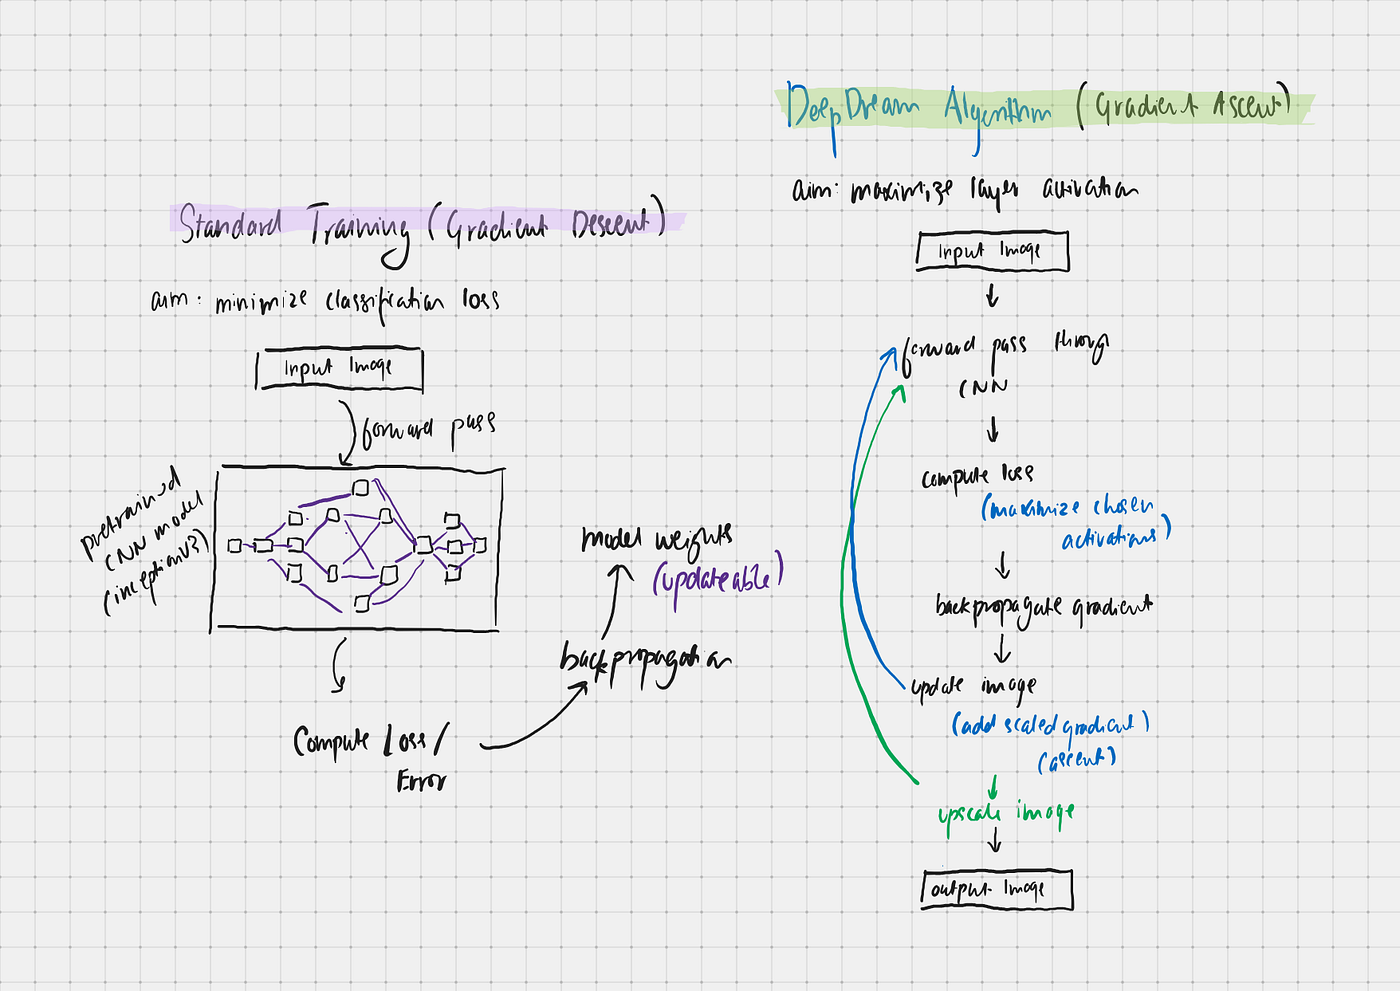 Standard Training (Gradient Descent)
aim: minimize classification loss
Input Image
forward pass
pretrained
CNN model
(inceptionV3)
model weights
(updateable)
backpropagation
Compute Loss/
Error
DeepDream Algorithm (Gradient Ascent)
aim: maximize layer activation
Input Image
forward pass throug
CNN
compute loss
(maximize chosen
activations)
backpropagate gradient
update image
(add scaled gradient)
(ascent)
upscale image
output Image